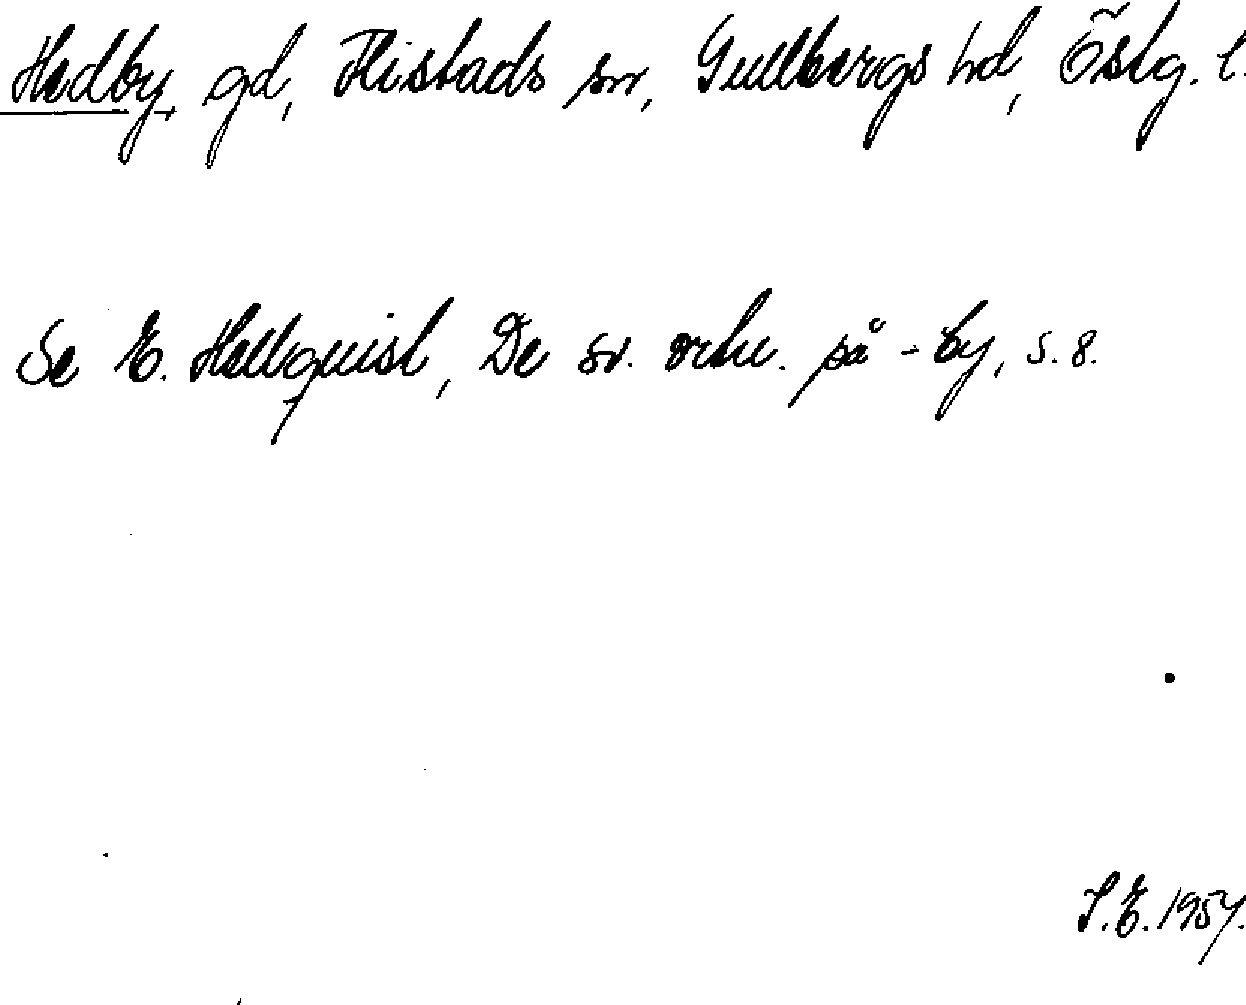 Hedby, gd, Flistads sn, Gullbergs hd, Östg. l.
Se E. Hellquist, De sv. ortn. på -by, s. 8.
S.E. 1957.